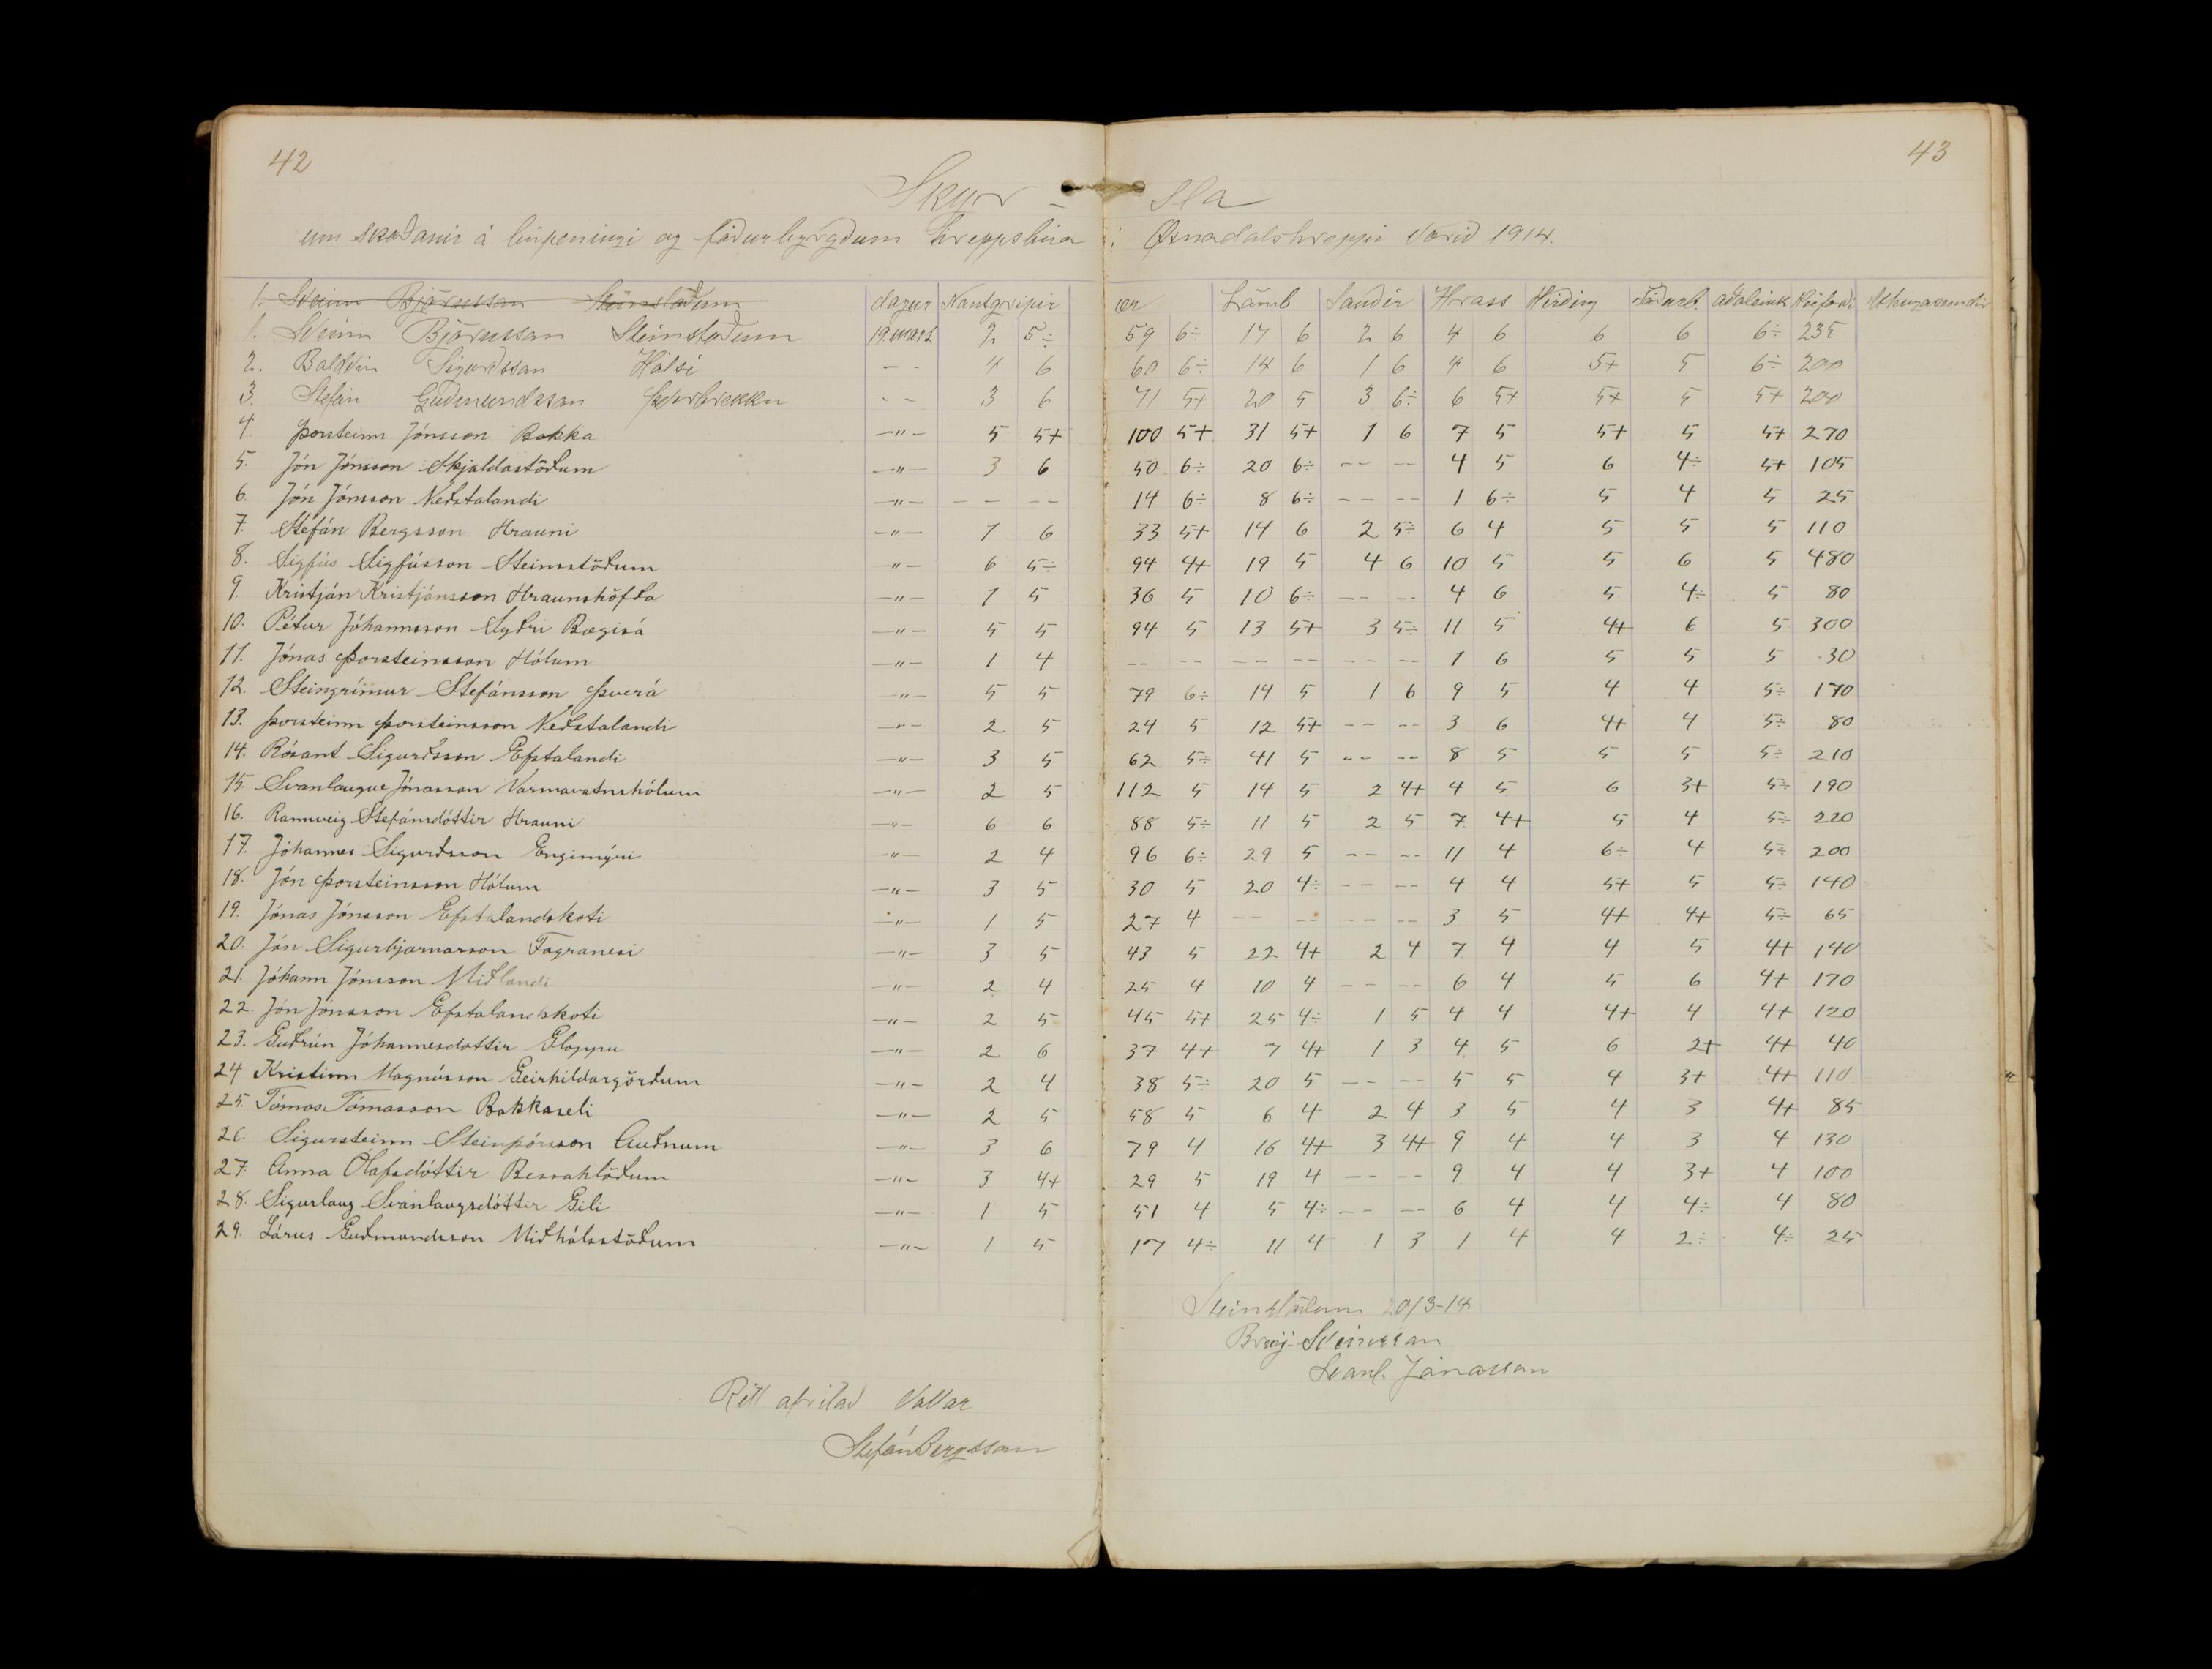 42
43
Skýr - sla
um skoðanir á búpeningi og fóðurbyrgðum hreppsbúa í Öxnadalshreppi Vorið 1914.
1. Steinn Bjarnsson Steinstöðum dagur Nautgripir ær Lömb Sauðir Hross Hirðing Fóðurb. aðaleink Heyforði Athugasemdir
1. Steinn Bjarnsson Steinstöðum 19. mars 2 5÷ 59 6÷ 17 6 2 6 4 6 6 6 6÷ 235
2. Baldvin Sigurdsson Hálsi - - 4 6 60 6÷ 14 6 1 6 4 6 5+ 5 6÷ 200
3. Stefán Guðmundsson Þverbrekku - - 3 6 71 5+ 20 5 3 6÷ 6 5+ 5+ 5 5+ 200
4. Þorsteinn Jónsson Bakka —"— 5 5+ 100 5+ 31 5+ 1 6 7 5 5+ 5 5+ 270
5. Jón Jónsson Skjaldastöðum —"— 3 6 50 6÷ 20 6÷ -- -- 4 5 6 4÷ 5+ 105
6. Jón Jónsson Neðstalandi —"— -- -- 14 6÷ 8 6÷ -- -- 1 6÷ 5 4 5 25
7. Stefán Bergsson Hrauni —"— 1 6 33 5+ 14 6 2 5÷ 6 4 5 5 5 110
8. Sigfús Sigfússon Steinsstöðum —"— 6 5÷ 94 4+ 19 5 4 6 10 5 5 6 5 480
9. Kristján Kristjánsson Hraunshöfða —"— 1 5 36 5 10 6÷ -- -- 4 6 5 4÷ 5 80
10. Pétur Jóhannsson Syðri Bægisá —"— 5 5 94 5 13 5+ 3 5÷ 11 5 4+ 6 5 300
11. Jónas Þorsteinsson Hólum —"— 1 4 -- -- -- -- -- -- 1 6 5 5 5 30
12. Steingrímur Stefánsson Þverá —"— 5 5 79 6÷ 14 5 1 6 9 5 4 4 5÷ 170
13. Þorsteinn Þorsteinsson Neðstalandi —"— 2 5 24 5 12 5+ -- -- 3 6 4+ 4 5÷ 80
14. Rósant Sigurðsson Efstalandi —"— 3 5 62 5÷ 41 5 -- -- 8 5 5 5 5÷ 210
15. Svanlaugur Jónasson Varmavatnshólum —"— 2 5 112 5 14 5 2 4+ 4 5 6 3+ 5÷ 190
16. Rannveig Stefánsdóttir Hrauni —"— 6 6 88 5÷ 11 5 2 5 7 4+ 5 4 5÷ 220
17. Jóhannes Sigurðsson Engimýri —"— 2 4 96 6÷ 29 5 -- -- 11 4 6÷ 4 5÷ 200
18. Jón Þorsteinsson Hólum —"— 3 5 30 5 20 4÷ -- -- 4 4 5+ 5 5÷ 140
19. Jónas Jónsson Efstalandskoti —"— 1 5 27 4 -- -- -- -- 3 5 4+ 4+ 5÷ 65
20. Jón Sigurbjarnarson Fagranesi —"— 3 5 43 5 22 4+ 2 4 7 4 4 5 4+ 140
21. Jóhann Jónsson Miðlandi —"— 2 4 25 4 10 4 -- -- 6 4 5 6 4+ 170
22. Jón Jónsson Efstalandskoti —"— 2 5 45 5+ 25 4÷ 1 5 4 4 4+ 4 4+ 120
23. Guðrún Jóhannesdottir Gloppu —"— 2 6 37 4+ 7 4+ 1 3 4 5 6 2+ 4+ 40
24 Kristinn Magnússon Geirhildargörðum —"— 2 4 38 5÷ 20 5 -- -- 5 5 4 3+ 4+ 110
25. Tómas Tómasson Bakkaseli —"— 2 5 58 5 6 4 2 4 3 5 4 3 4+ 85
26. Sigursteinn Steinþórsson Auðnum —"— 3 6 79 4 16 4+ 3 4+ 9 4 4 3 4 130
27. Anna Ólafsdóttir Bessahlöðum —"— 3 4+ 29 5 19 4 -- -- 9 4 4 3+ 4 100
28. Sigurlaug Svanlaugsdóttir Gili —"— 1 5 51 4 5 4÷ -- -- 6 4 4 4÷ 4 80
29. Lárus Guðmundsson Miðhálsstöðum —"— 1 5 17 4÷ 11 4 1 3 1 4 4 2÷ 4÷ 25
Steinstöðum 20/3-14
Steinsson
Svanl. Jónasson
Rétt afritað Vottar
Stefán Bergsson